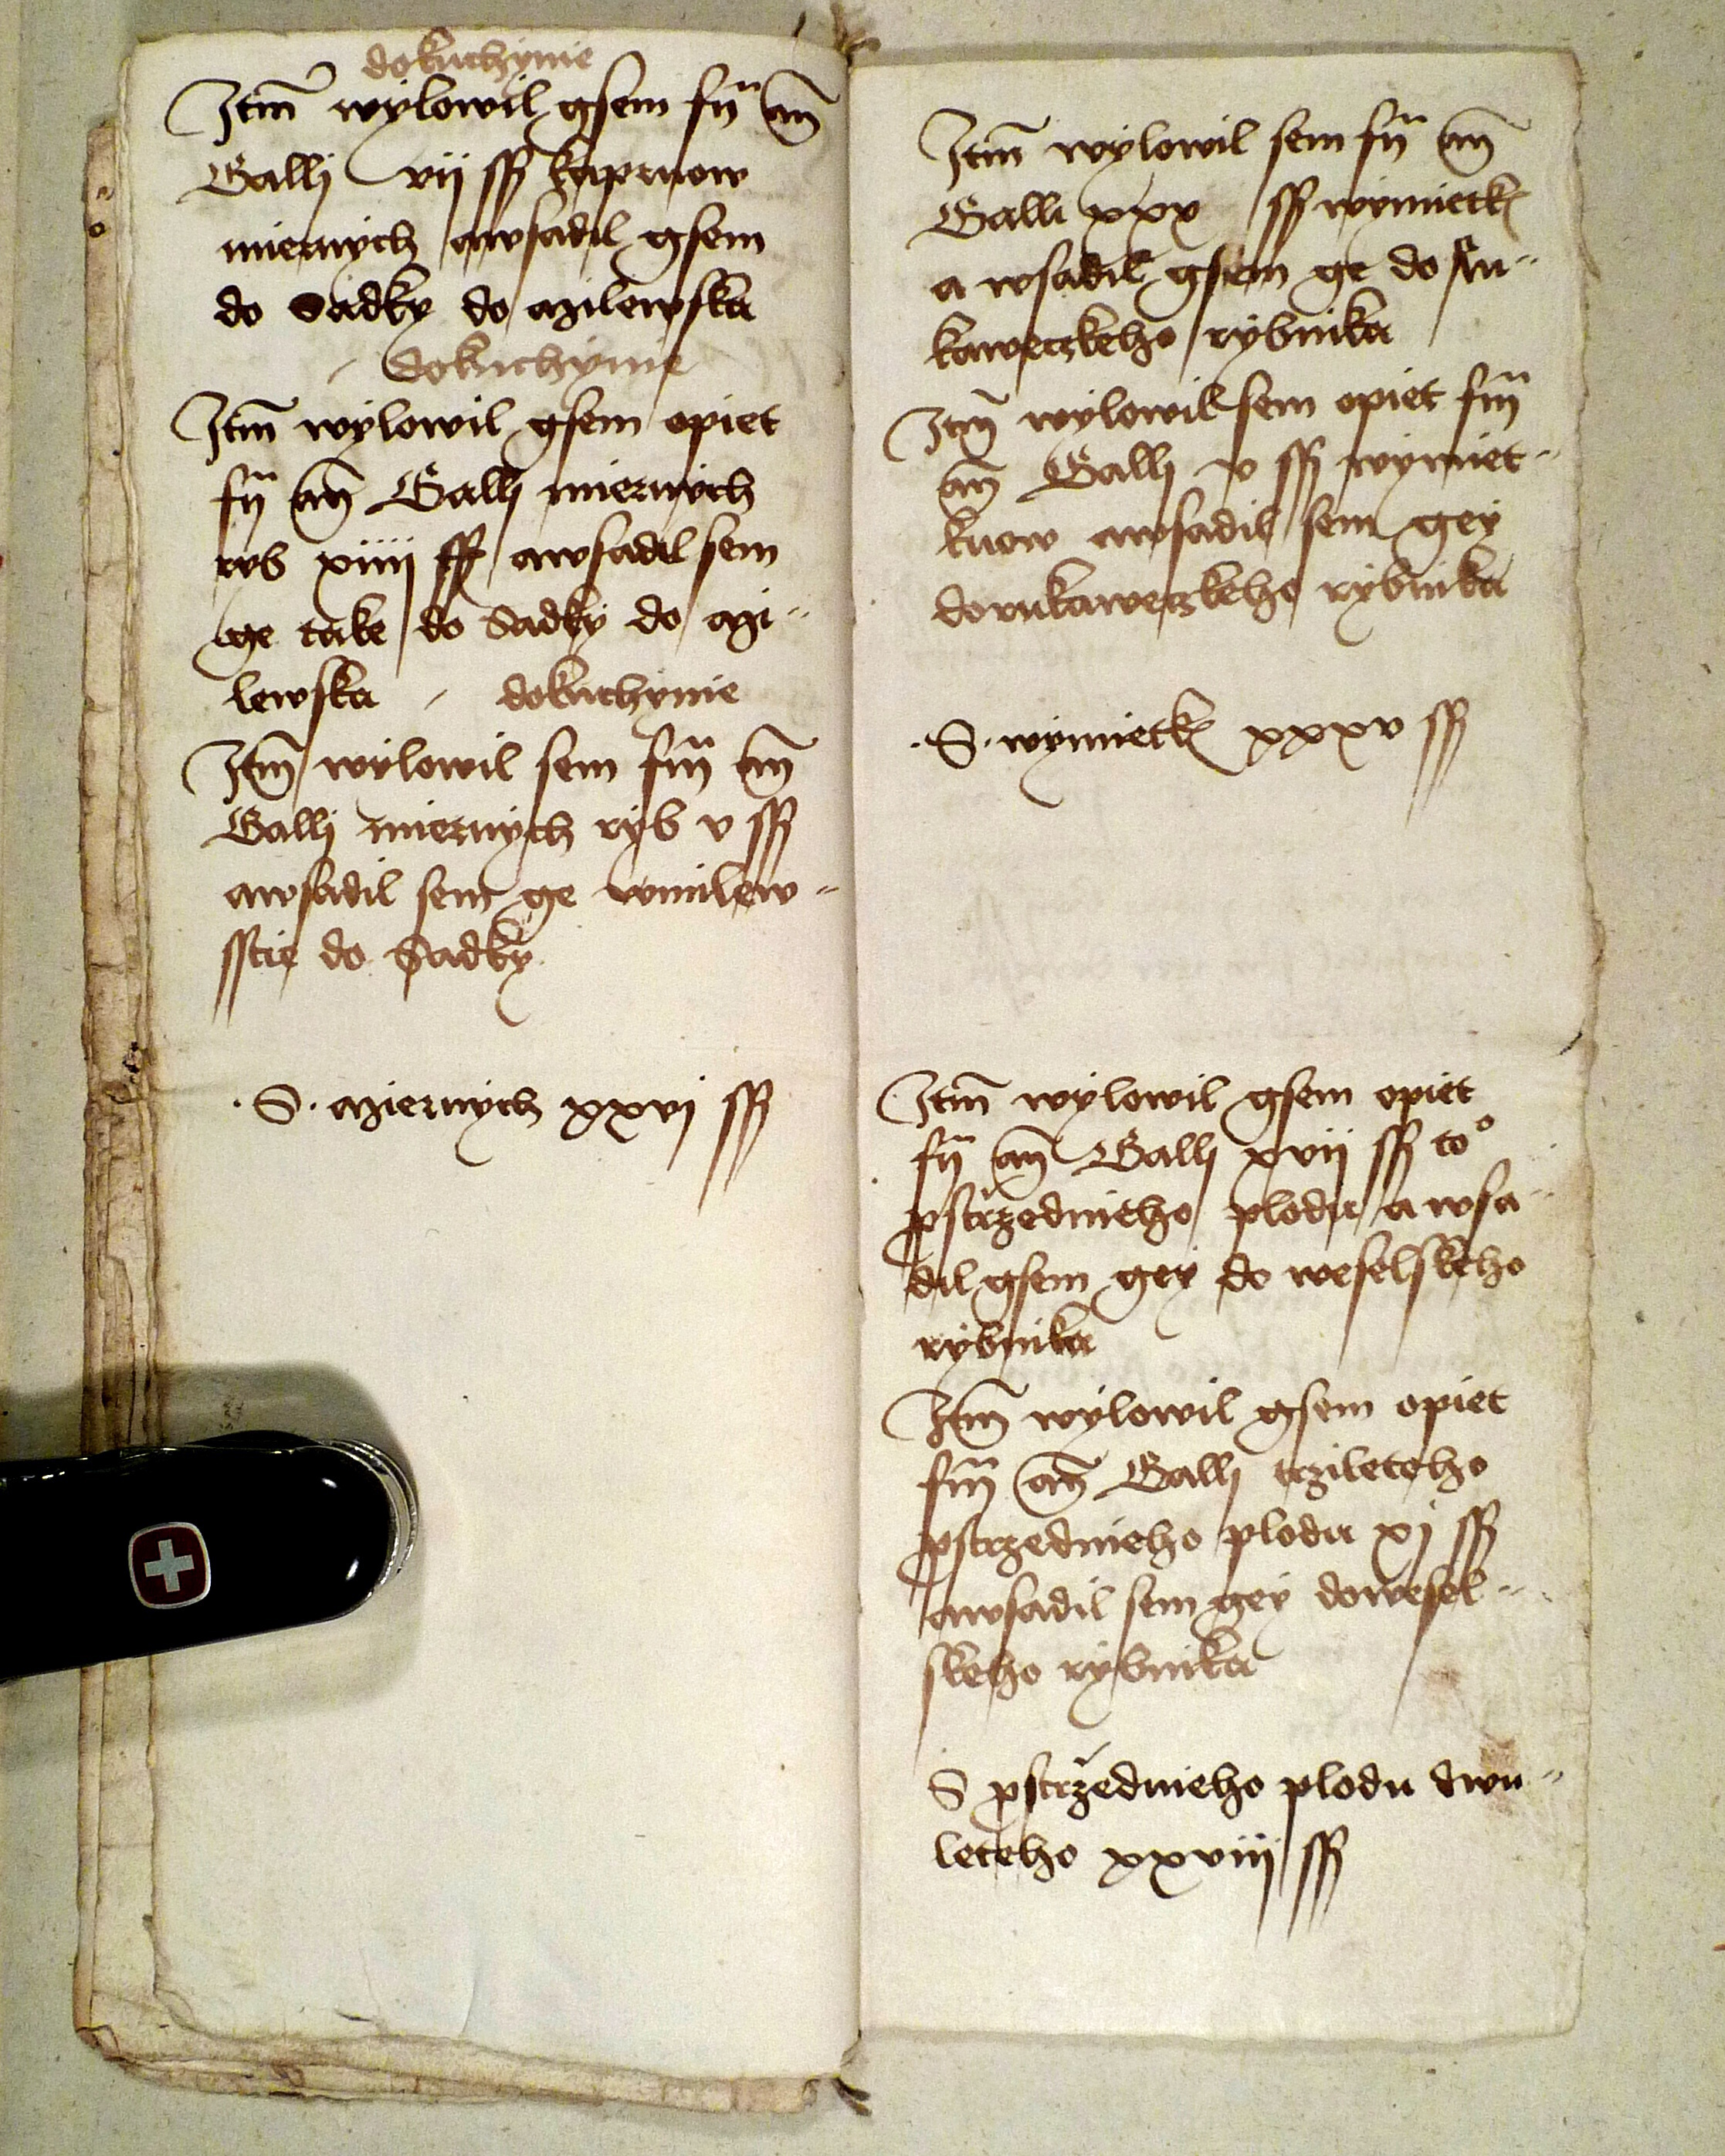 dokuchynie
Itm wylowil gsem fn an
Galli vii ss kaprnow
miernych awsadil gsem
do Sadky do milewska
dokuchynie
Itm wylowil gsem opiet
fn an Galli miernych
ryb xiiii ss awsadil sem
ge take do Sadky do mi-
lewska dokuchynie
Itm wylowil sem fm an
Galli miernych ryb v ss
awsadil sem ge wmilew-
sstie do Sadky
S. miernych xxvj ss
Itm wylowil sem fn an
Galli xxx ss wymietk
a wsadil gsem ge do Ru-
kaweczkeho rybnika
Itm wylowil sem opiet fm
an Galli v ss wymiet-
kuow awsadil sem gey
dorukaweczkeho rybnika
S. wymietk xxxv ss
Itm wylowil gsem opiet
fn an Galli xvii ss to
pstrzednieho plodu a wsa-
dil gsem gey do weselskeho
rybnika
Itm wylowil gsem opiet
fm an Galli trzileteho
pstrzednieho plodu xj ss
awsadil sem gey dowesel-
skeho rybnika
S pstrzednieho plodu dwu-
leteho xxviij ss